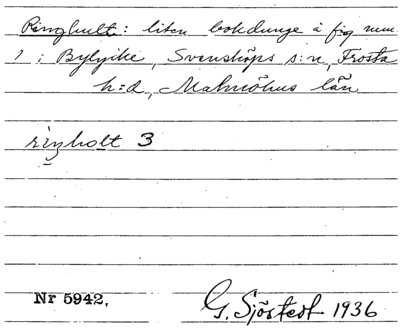 Ringhult: liten bokdunge å fig num
1 i Bylyike, Svensköps s:n, Frosta
h:d, Malmöhus län
ringholt 3
Nr 5942. G. Sjöstedt 1936